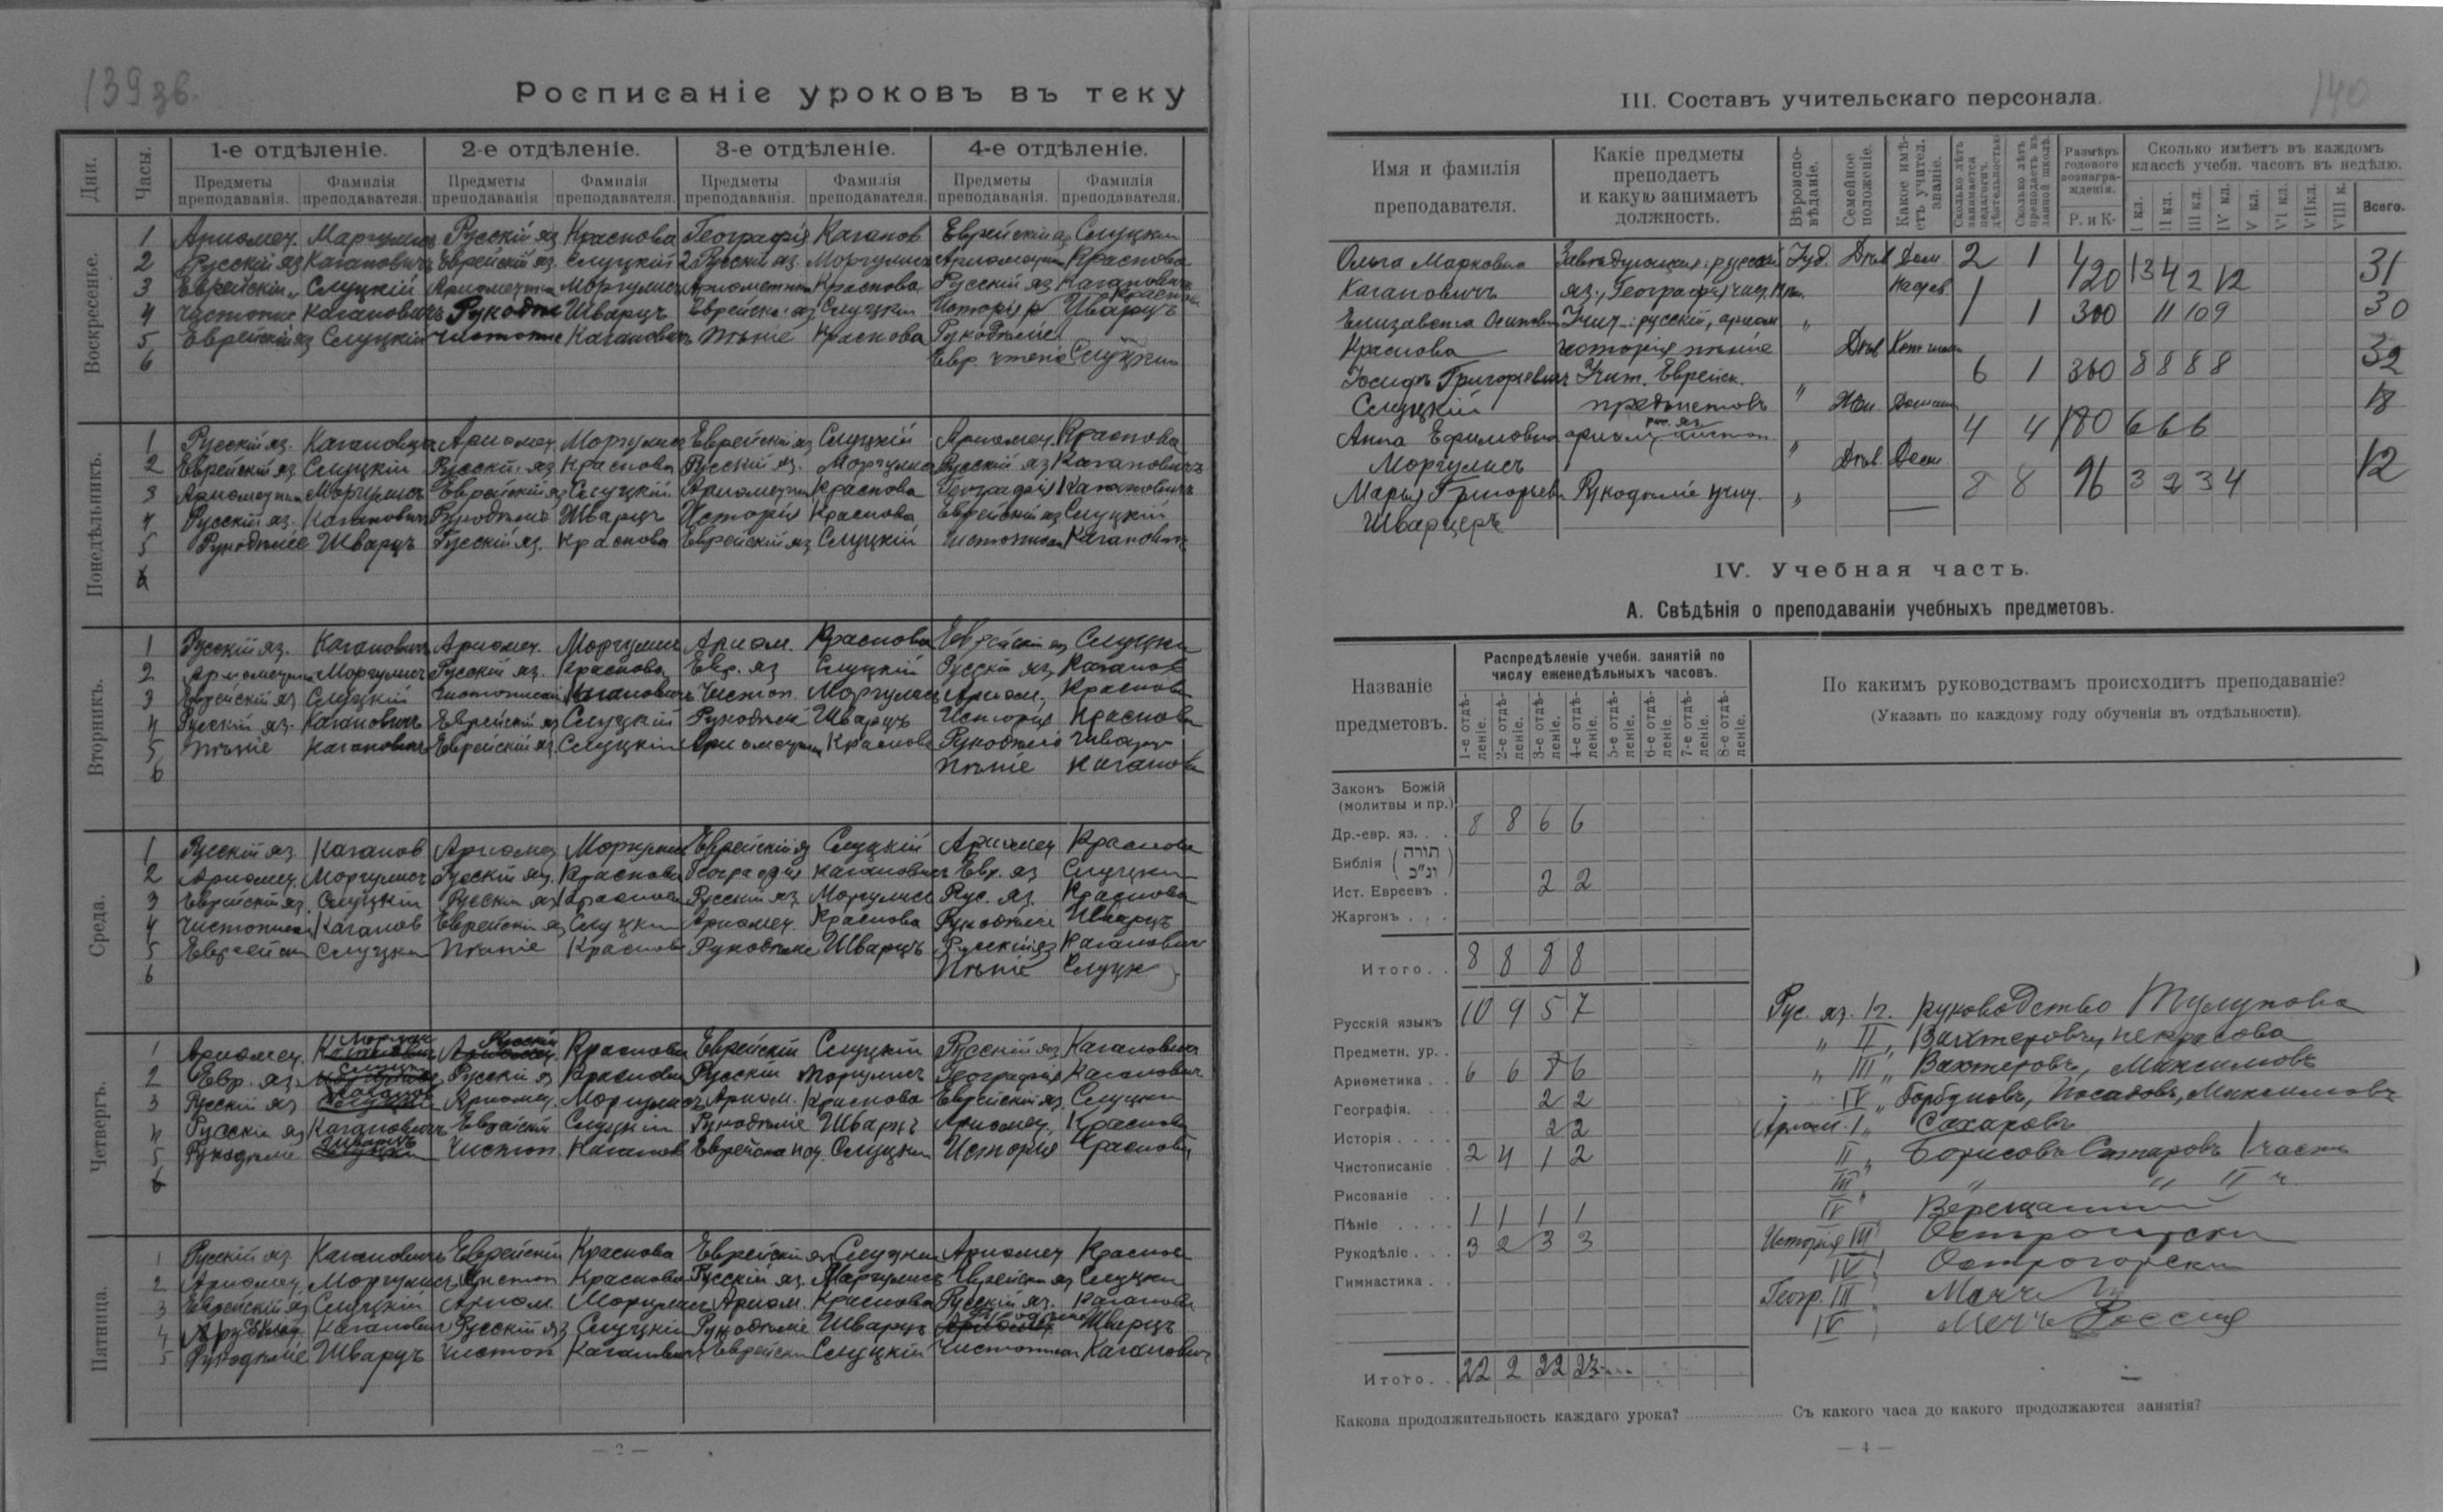 139 зв.
Росписаніе уроковъ въ теку
Дни.
Часы.
1-е отдѣленіе.
2-е отдѣленіе.
3-е отдѣленіе.
4-е отдѣленіе.
Предметы преподаванія.
Фамилія преподавателя.
Предметы преподаванія
Фамилія преподавателя.
Предметы преподаванія.
Фамилія преподавателя.
Предметы преподаванія.
Фамилія преподавателя.
Воскресенье.
1 Ариѳмет. Моргулисъ Русскій яз Краснова Географія Каганов Еврейскій яз Слуцкій
2 Русскій яз Кагановичъ Еврейскій яз. Слуцкій Русскій яз. Моргулисъ Ариѳметика Краснова
3 Еврейскій Слуцкій Ариѳметика Моргулисъ Ариѳметика Краснова Русскій яз Кагановичъ
4 Чистописа Кагановичъ Рукодѣл Шварцъ Еврейскій яз Слуцкій Исторія Краснова Шварцъ
5 Еврейскій яз Слуцкій Чистопис Кагановичъ Пѣніе Краснова Рукодѣліе
6 Евр. чтеніе Слуцкій
Понедѣльникъ.
1 Русскій яз. Кагановичъ Ариѳмет. Моргулисъ Еврейскій яз Слуцкій Ариѳмет. Краснова
2 Еврейскій яз Слуцкій Русскій яз Краснова Русскій яз. Моргулисъ Русскій яз Кагановичъ
3 Ариѳметика Моргулисъ Еврейскій яз Слуцкій Ариѳметик Краснова Географія Кагановичъ
4 Русскій яз. Кагановичъ Рукодѣліе Шварцъ Исторія Краснова Еврейскій яз Слуцкій
5 Рукодѣліе Шварцъ Русскій яз. Краснова Еврейскій яз Слуцкій Чистописан Кагановичъ
6
Вторникъ.
1 Русскій яз. Кагановичъ Ариѳмет. Моргулисъ Ариѳм. Краснова Еврейскій яз Слуцкій
2 Ариѳметика Моргулисъ Русскій яз. Краснова Евр. яз Слуцкій Русскій яз Каганов
3 Еврейскій яз Слуцкій Чистописан Кагановичъ Чистоп. Моргулисъ Ариѳм. Краснова
4 Русскій яз. Кагановичъ Еврейскій яз Слуцкій Рукодѣліе Шварцъ Исторія Краснова
5 Пѣніе Кагановичъ Еврейскій яз. Слуцкій Ариѳметик Краснова Рукодѣліе Шварцъ
6 Пѣніе Каганов
Среда.
1 Русскій яз Каганов Ариѳмет Моргулисъ Еврейскій яз Слуцкій Ариѳмет Краснова
2 Ариѳмет. Моргулисъ Русскій яз. Краснова Географія Кагановичъ Евр. яз Слуцкій
3 Еврейскій яз. Слуцкій Русскій яз Краснова Русскій яз Моргулисъ Рус. яз Краснова
4 Чистописан Каганов Еврейскій яз Слуцкій Ариѳмет. Краснова Рукодѣліе Шварцъ
5 Еврейскій Слуцкій Пѣніе Краснова Рукодѣліе Шварцъ Русскій яз Кагановичъ
6 Пѣніе Слуцк
Четвергъ.
1 Ариѳмет. Моргул Русскій Краснова Еврейскій Слуцкій Русскій яз Кагановичъ
2 Евр. яз. Слуцк Русскій яз Краснова Русскій Моргулисъ Географія Кагановичъ
3 Русскій яз Каганов Ариѳмет. Моргулисъ Ариѳм. Краснова Еврейскій яз Слуцкій
4 Русскій яз Кагановичъ Еврейскій Слуцкій Рукодѣліе Шварцъ Ариѳмет. Краснова
5 Рукодѣліе Шварцъ Чистоп Каганов Еврейскій яз. Слуцкій Исторія Краснова
6
Пятница.
1 Русскій яз. Кагановичъ Еврейскій Краснова Еврейскій яз Слуцкій Ариѳмет Краснов
2 Ариѳмет. Моргулисъ Чистоп Краснова Русскій яз. Моргулисъ Еврейскій яз Слуцкій
3 Еврейскій яз Слуцкій Ариѳм. Моргулисъ Ариѳм. Краснова Русскій яз. Каганов
4 Кагановичъ Русскій яз Слуцкій Рукодѣліе Шварцъ Шварцъ
5 Рукодѣліе Шварцъ Чистоп Кагановичъ Еврейскій Слуцкій Чистописан Кагановичъ
— 2 —
140
III. Составъ учительскаго персонала.
Имя и фамилія преподавателя.
Какіе предметы преподаетъ и какую занимаетъ должность.
Вѣроиспо-вѣданіе.
Семейное положеніе.
Какое имѣ-етъ учител. званіе.
Сколько лѣтъ занимается педагогич. дѣятельностью
Сколько лѣтъ преподаетъ въ данной школѣ.
Размѣръ годового вознагра-жденія.
Р. и К.
Сколько имѣетъ въ каждомъ классѣ учебн. часовъ въ недѣлю.
I кл. II кл. III кл. IV кл. V кл. VI кл. VII кл. VIII к. Всего.
Ольга Марковна Завѣдующая: русскій Іуд. Дѣв Дом 2 1 420 13 4 2 12 31
Кагановичъ яз., Географ, чист.
Елизавета Осиповна Учит.: русскій, ариѳм " 1 1 300 11 10 9 30
Краснова исторія пѣніе Дѣв
Іосифъ Григорьевичъ Учит. Еврейск. " 6 1 360 8 8 8 8 32
Слуцкій предметовъ Жен
Анна Ефимовна ариѳм. рус. яз чистоп " 4 4 180 6 6 6 18
Моргулисъ Дѣв. Дом
Марья Григорьев Рукодѣліе учит. " 8 8 96 3 2 3 4 12
Шварцеръ
IV. Учебная часть.
А. Свѣдѣнія о преподаваніи учебныхъ предметовъ.
Названіе предметовъ.
Распредѣленіе учебн. занятій по числу еженедѣльныхъ часовъ.
1-е отдѣ-леніе. 2-е отдѣ-леніе. 3-е отдѣ-леніе. 4-е отдѣ-леніе. 5-е отдѣ-леніе. 6-е отдѣ-леніе. 7-е отдѣ-леніе. 8-е отдѣ-леніе.
По какимъ руководствамъ происходитъ преподаваніе?
(Указать по каждому году обученія въ отдѣльности).
Законъ Божій
(молитвы и пр.)
Др.-евр. яз. . . 8 8 6 6
Библія ( תורה ונ"כ )
Ист. Евреевъ . 2 2
Жаргонъ . . .
Итого. . 8 8 8 8
Русскій языкъ 10 9 5 7 Рус. яз. I г. руководство Тулупова
Предметн. ур. . " II " Вахтеровъ, Некрасова
Ариѳметика . . 6 6 7 6 " III " Вахтеровъ, Максимовъ
Географія. . . 2 2 IV " Горбуновъ, Посадовъ, Максимовъ
Исторія . . . . 2 2 Ариѳм. I " Сахаровъ
Чистописаніе . 2 4 1 2 II " Борисовъ Сатаровъ I часть
Рисованіе . . III " " " II ч.
Пѣніе . . . . 1 1 1 1 IV " Верещагинъ
Рукодѣліе . . . 3 2 3 3 Исторія III Острогорскій
Гимнастика . . IV Острогорскій
Геогр. III Мечъ
IV Мечъ Россія
Итого. . 22 2 22 23
Какова продолжительность каждаго урока? Съ какого часа до какого продолжаются занятія?
— 4 —